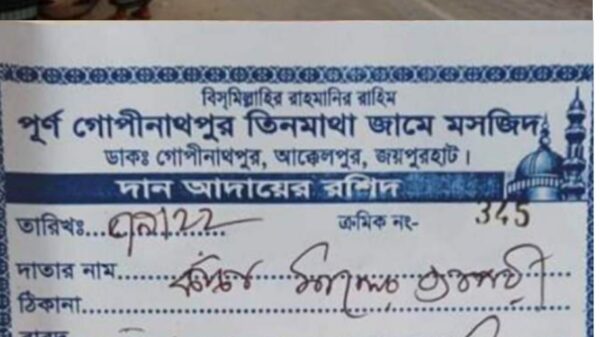 বিস্‌মিল্লাহির রাহমানির রাহিম
পূর্ণ গোপীনাথপুর তিনমাথা জামে মসজিদ
ডাকঃ গোপীনাথপুর, আক্কেলপুর, জয়পুরহাট।
দান আদায়ের রশিদ
তারিখঃ ক্রমিক নং- 345
দাতার নাম
ঠিকানা